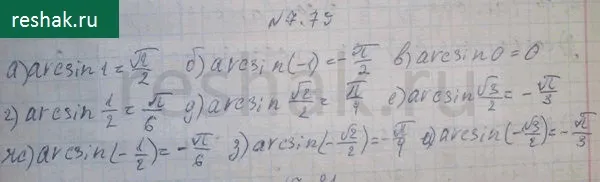 reshak.ru
№7.79
а) arcsin 1 = π/2 б) arcsin(-1) = -π/2 в) arcsin 0 = 0
г) arcsin 1/2 = π/6 д) arcsin √2/2 = π/4 е) arcsin √3/2 = -π/3
ж) arcsin(-1/2) = -π/6 з) arcsin(-√2/2) = -π/4 и) arcsin(-√3/2) = -π/3